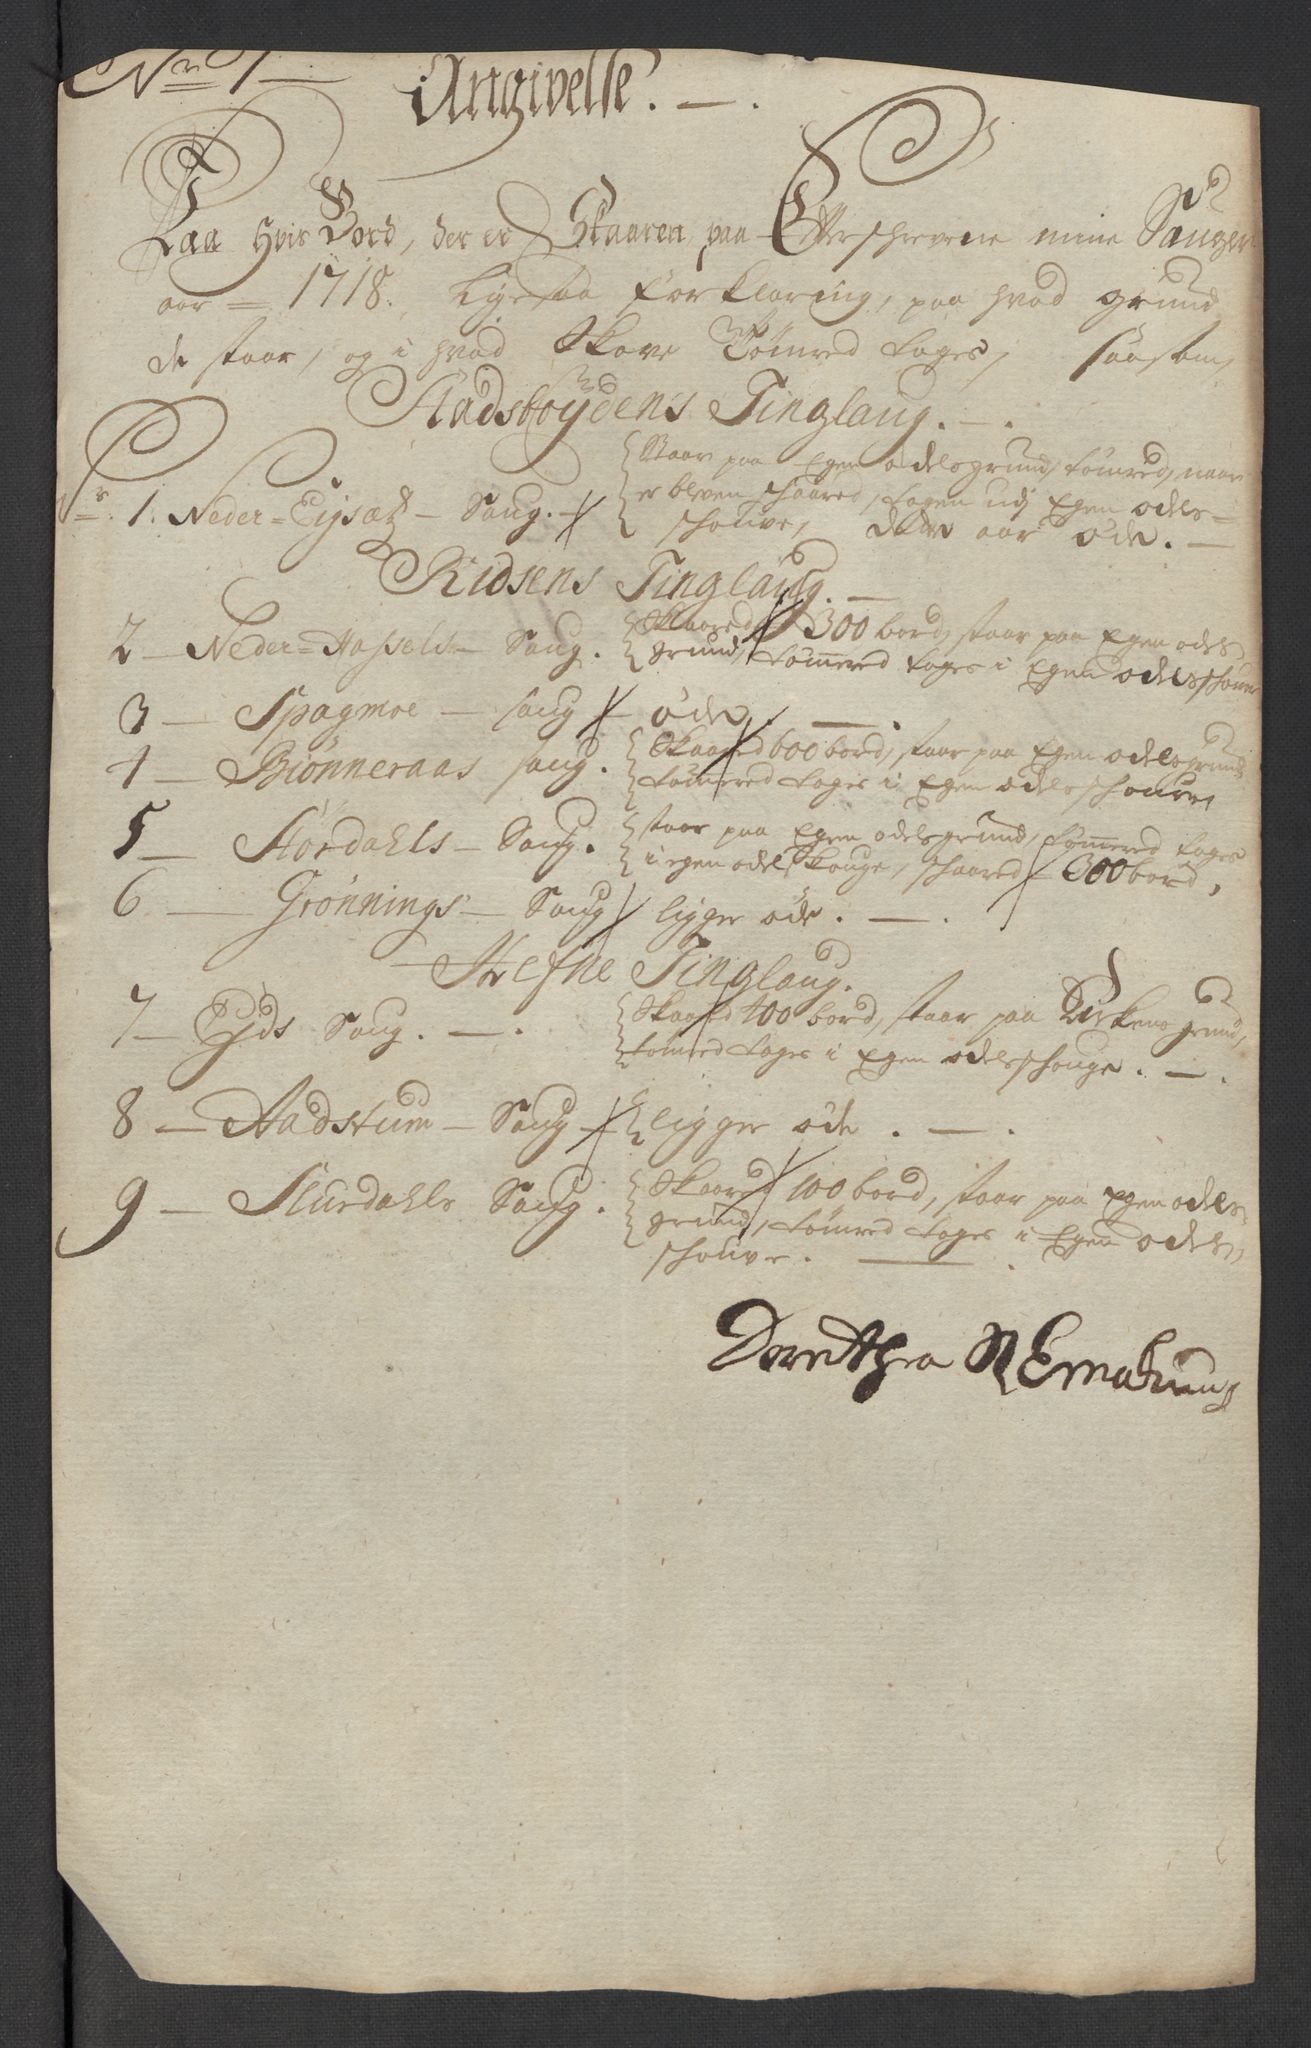 No 1
Angivelse.
Paa Hvis Bord, der er Skaaren, paa Effterschrevene mine Sauger
aar 1718. Ligesaa forklaring, paa hvad grund
de staar, og i hvad Skove Tömred tages, saasom,
Stadsböydens Tinglaug.
No. 1. Neder-Eigsætz Saug. { Staar paa Egen odelsgrund, tömred, naar
er bleven schaared, tagen udj Egen odels-
schouve, dette aar øde.
Ridsens Tinglaug.
2 Neder-Hassels Saug. { Skaared 300 bord, staar paa Egen odels
grund, tømmered tages i Egen odelsschouve
3 Spagmoe saug øde.
4 Biönneraas saug. { Skaared 600 bord, staar paa Egen odelsgrund
tömmered tages i Egen odelsschouve
5 Stördahls Saug. { staar paa Egen odelsgrund, tömmered tages
i egen odelskouge, schaared 300 bord,
6 Grönnings Saug ligger øde.
Hefne Tinglaug.
7 Eids Saug. { Skaared 400 bord, staar paa Kirkens grund,
tömred tages i Egen odelsschouge.
8 Aadstum Saug { ligger øde.
9 Slurdahls Saug. { Skaared 100 bord, staar paa Egen odels
grund, tömred tages i Egen odels,
schouve.
Dorethea